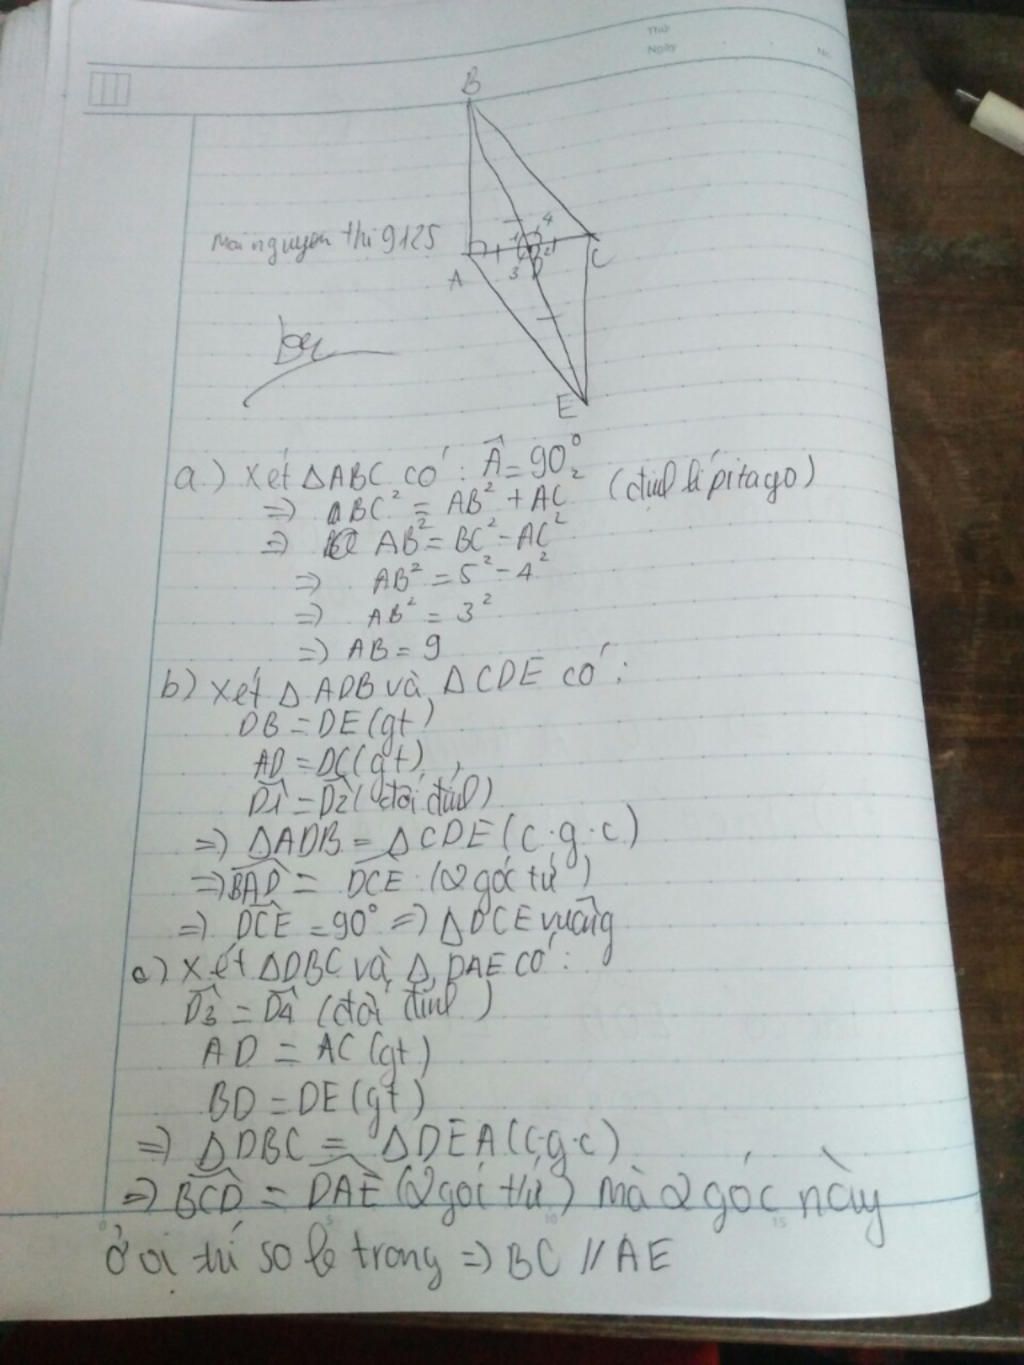 Thứ
Ngày
No.
B
Mainguyen thi9125
4
1
2
3
A
D
C
E
a.) Xét ΔABC có: Â = 90°
=> BC² = AB² + AC² (định lí pitago)
=> AB² = BC² - AC²
=> AB² = 5² - 4²
=> AB² = 3²
=> AB = 9
b) Xét Δ ADB và Δ CDE có:
DB = DE (gt)
AD = DC (gt)
D̂1 = D̂2 (đối đỉnh)
=> ΔADB = ΔCDE (c.g.c)
=> B̂AD = D̂CE (2 góc tứ)
=> D̂CE = 90° => ΔDCE vuông
c) Xét ΔDBC và ΔDAE có:
D̂3 = D̂4 (đối đỉnh)
AD = AC (gt)
BD = DE (gt)
=> ΔDBC = ΔDEA (c.g.c)
=> B̂CD = D̂AE (2 góc t/ứ) mà 2 góc này
0 5 10 15
ở vị trí so le trong => BC // AE